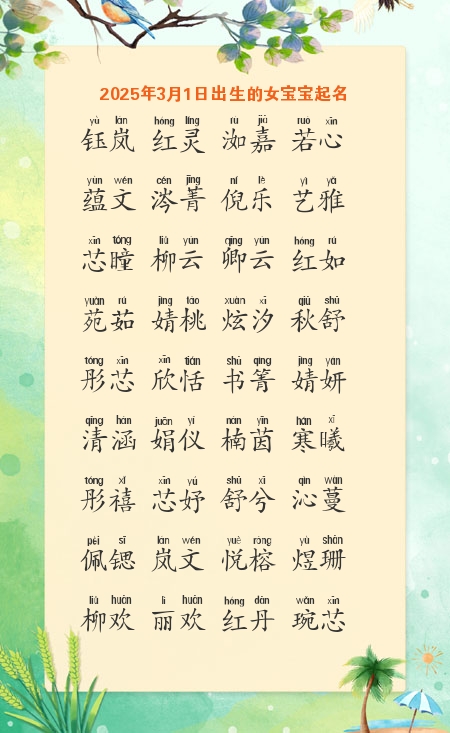 2025年3月1日出生的女宝宝起名
yù lán hóng líng rù jiā ruò xīn
钰岚 红灵 洳嘉 若心
yùn wén cén jīng ní lè yì yǎ
蕴文 涔菁 倪乐 艺雅
xīn tóng liǔ yún qīng yún hóng rú
芯瞳 柳云 卿云 红如
yuàn rú jìng táo xuàn xī qiū shū
苑茹 婧桃 炫汐 秋舒
tóng xīn xīn tián shū qìng jìng yán
彤芯 欣恬 书箐 婧妍
qīng hán juān yí nán yīn hán xī
清涵 娟仪 楠茵 寒曦
tóng xǐ xīn yú shū xī qìn wàn
彤禧 芯妤 舒兮 沁蔓
pèi sī lán wén yuè róng yù shān
佩锶 岚文 悦榕 煜珊
liǔ huān lì huān hóng dān wǎn xīn
柳欢 丽欢 红丹 琬芯